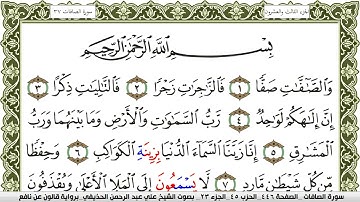 الجزء الثالث والعشرون سورة الصافات ٣٧
بِسۡمِ اللَّهِ الرَّحۡمَٰنِ الرَّحِيمِ
وَالصَّٰٓفَّٰتِ صَفّٗا ١ فَالزَّٰجِرَٰتِ زَجۡرٗا ٢ فَالتَّٰلِيَٰتِ ذِكۡرًا ٣
إِنَّ إِلَٰهَكُمۡ لَوَٰحِدٞ ٤ رَّبُّ السَّمَٰوَٰتِ وَالۡأَرۡضِ وَمَا بَيۡنَهُمَا وَرَبُّ
الۡمَشَٰرِقِ ٥ إِنَّا زَيَّنَّا السَّمَآءَ الدُّنۡيَا بِزِينَةِ الۡكَوَاكِبِ ٦ وَحِفۡظٗا
مِّن كُلِّ شَيۡطَٰنٖ مَّارِدٖ ٧ لَّا يَسۡمَعُونَ إِلَى الۡمَلَإِ الۡأَعۡلَىٰ وَيُقۡذَفُونَ
سورة الصافات الصفحة ٤٤٦ الحزب ٤٥ الجزء ٢٣ بصوت الشيخ علي عبد الرحمن الحذيفي برواية قالون عن نافع